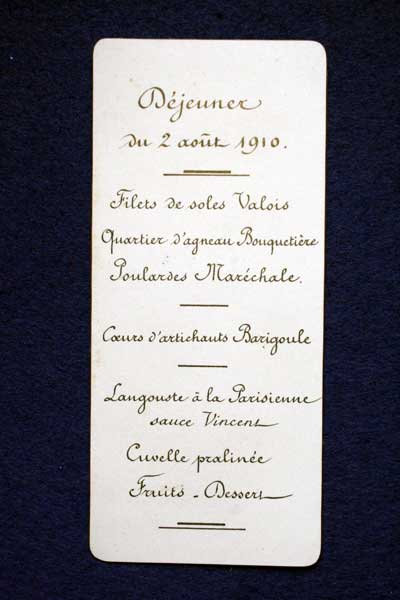 Déjeuner
du 2 août 1910.
Filets de soles Valois
Quartier d'agneau Bouquetière
Poulardes Maréchale.
Cœurs d'artichauts Barigoule
Langouste à la Parisienne
sauce Vincent
Cuvelle pralinée
Fruits - Dessert